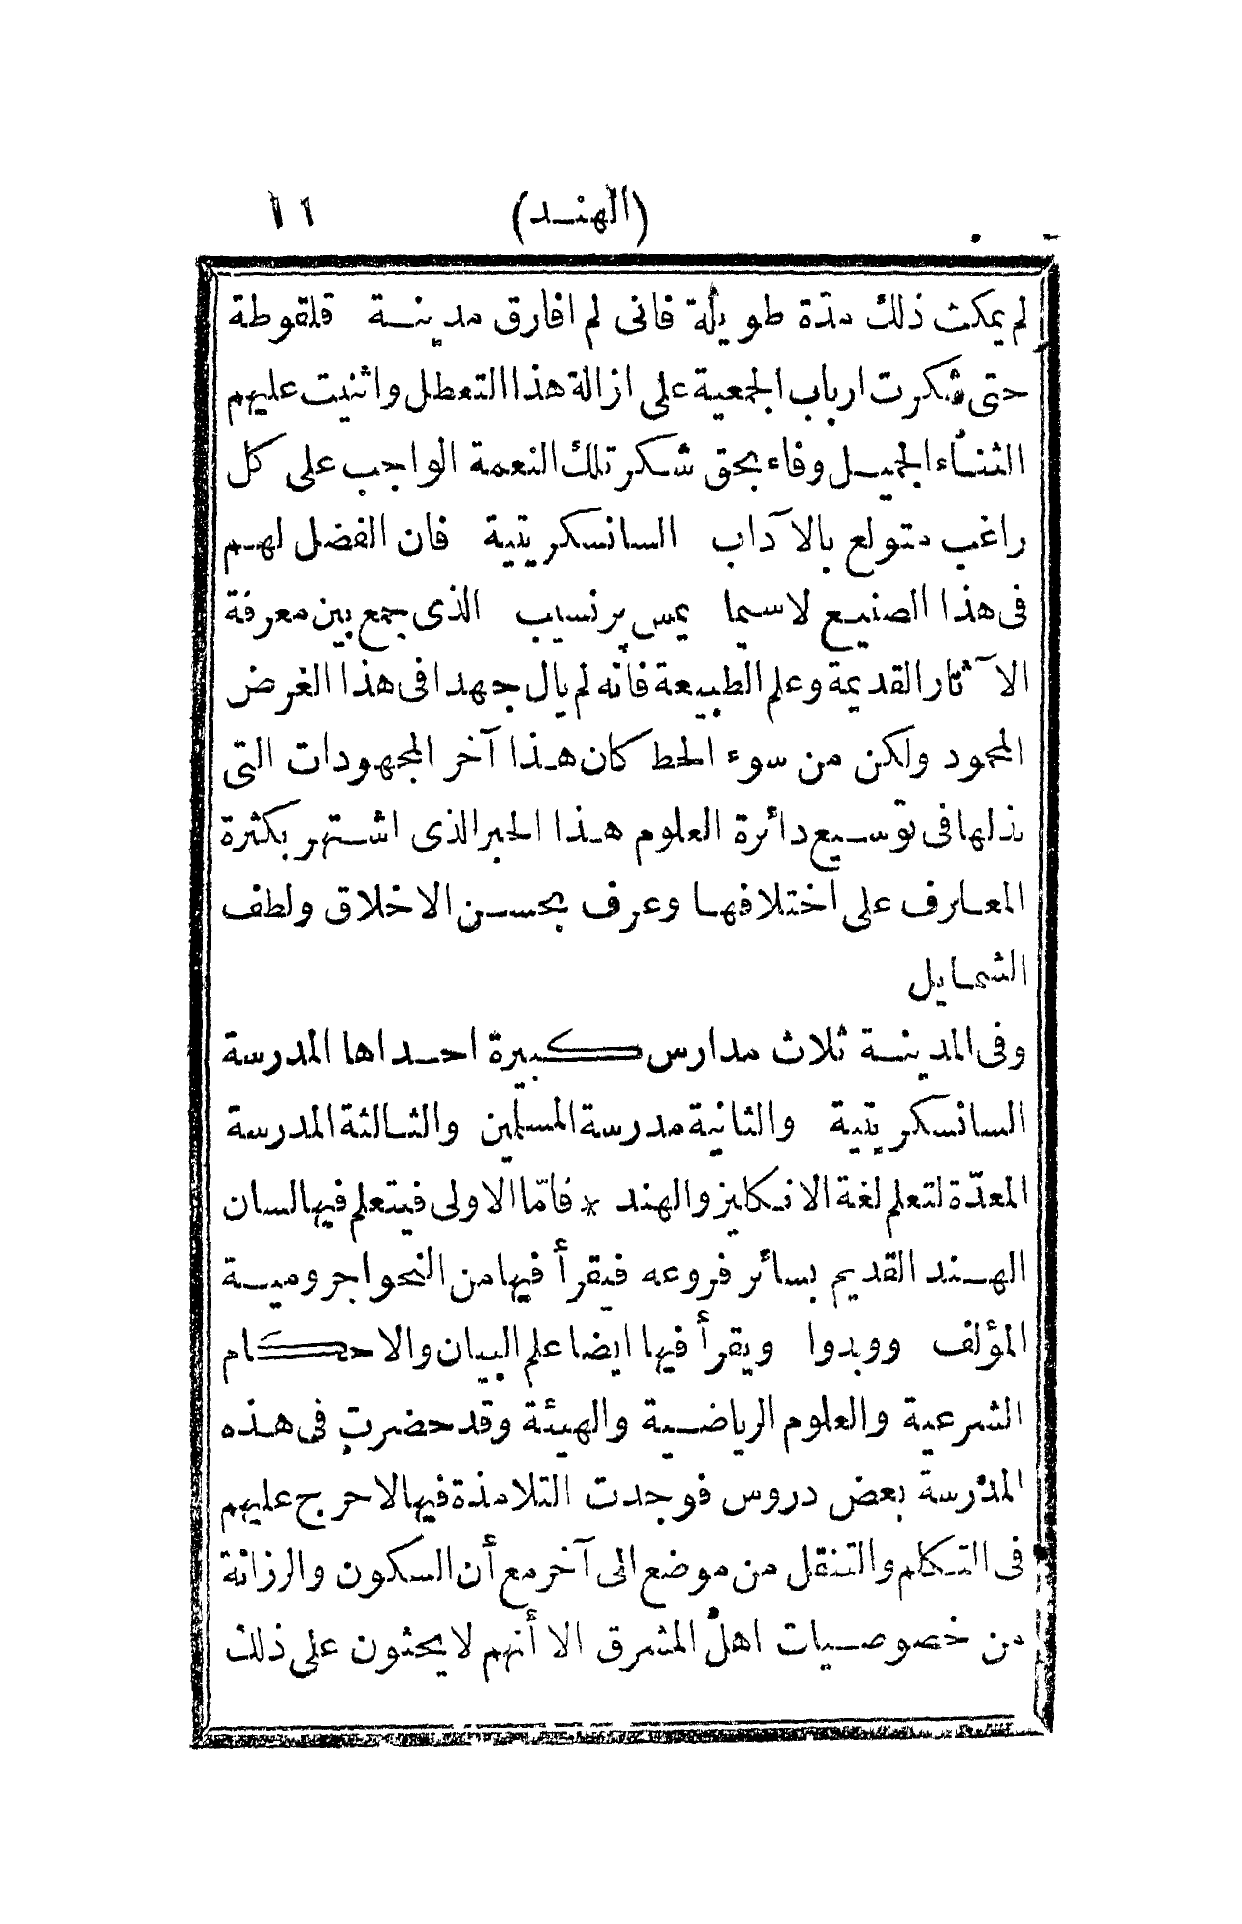 (الهنـد) ١١
لم يمكث ذلك مدّة طويلة فانى لم افارق مدينـة قلقوطة
حتى شكرت ارباب الجمعية على ازالة هذا التعطل واثنيت عليهم
الثنـاء الجميـل وفاء بحق شـكر تلك النعمة الواجب على كل
راغب متولع بالآداب السانسكريتية فان الفضل لهـم
فى هذا الصنيـع لاسـيما يمس پرنسيب الذى جمع بين معرفة
الآثار القديمة وعلم الطبيعة فانه لم يال جهدا فى هذا الغرض
المحمود ولكن من سوء الحظ كان هـذا آخر المجهودات التى
بذلها فى توسـيع دائرة العلوم هـذا الحبر الذى اشـتهر بكثرة
المعـارف على اختلافهـا وعرف بحسـن الاخلاق ولطف
الشمـايل
وفى المدينـة ثلاث مدارس كـبيرة احـداها المدرسة
السانسكريتية والثانية مدرسة المسلمين والثـالثة المدرسة
المعدّة لتعلم لغة الانكليز والهند * فامّا الاولى فيتعلم فيها لسان
الهـند القديم بسائر فروعه فيقرأ فيها من النحو اجروميـة
المؤلف ووبدوا ويقرأ فيها ايضا علم البيان والاحكـام
الشرعية والعلوم الرياضـية والهيئة وقد حضرت فى هـذه
المدرسة بعض دروس فوجدت التلامذة فيها لاحرج عليهم
فى التـكلم والتـنقل من موضع الى آخر مع أن السكون والرزانة
من خصوصـيات اهل المشرق الا أنهم لا يحثون على ذلك